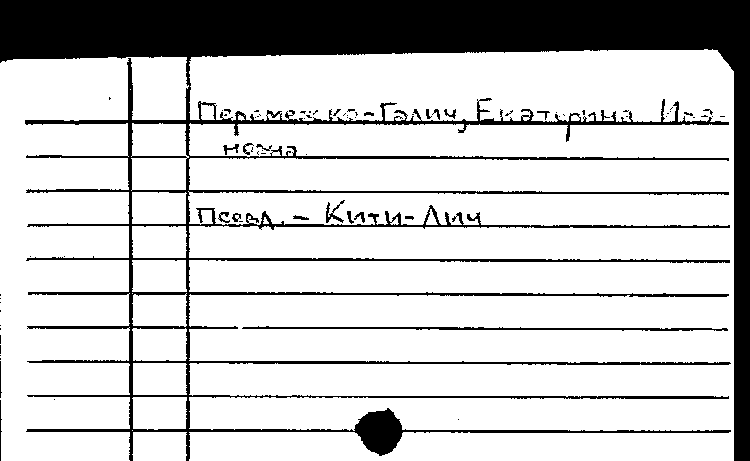 Перемежко-Галич, Екатерина Ива-
новна
Псевд. - Кити-Лич